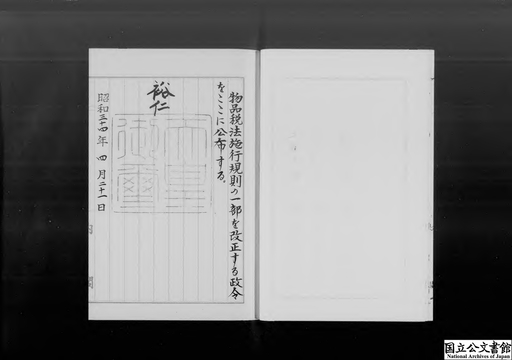 物品税法施行規則の一部を改正する政令
をここに公布する。
裕仁
天皇御璽
昭和三十四年四月二十一日
国立公文書館
National Archives of Japan